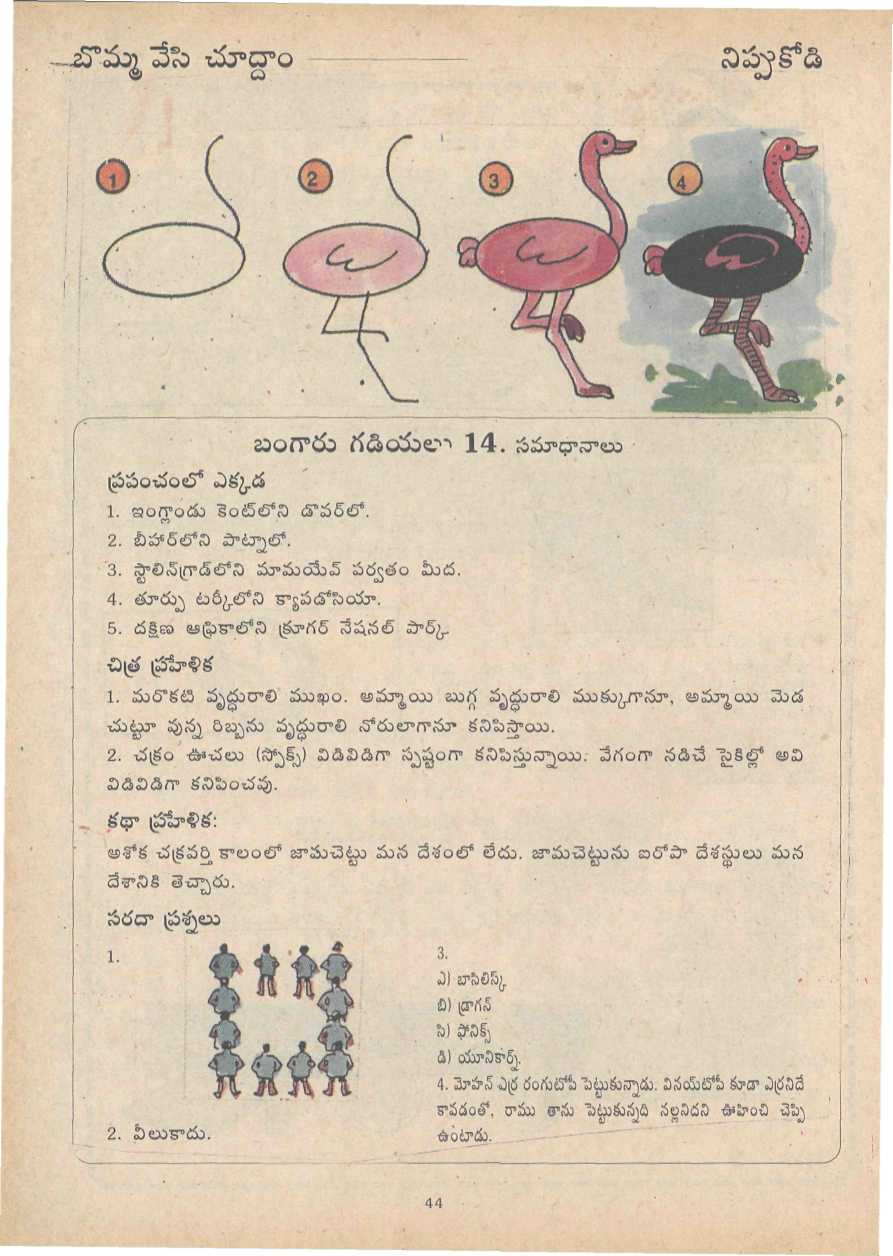 బొమ్మ వేసి చూద్దాం
నిప్పుకోడి
1
2
3
4
బంగారు గడియలు 14. సమాధానాలు
ప్రపంచంలో ఎక్కడ
1. ఇంగ్లాండు కెంట్‌లోని డొవర్‌లో.
2. బీహార్‌లోని పాట్నాలో.
3. స్టాలిన్‌గ్రాడ్‌లోని మామయేవ్ పర్వతం మీద.
4. తూర్పు టర్కీలోని క్యాపడోసియా.
5. దక్షిణ ఆఫ్రికాలోని క్రూగర్ నేషనల్ పార్క్.
చిత్ర ప్రహేళిక
1. మరొకటి వృద్ధురాలి ముఖం. అమ్మాయి బుగ్గ వృద్ధురాలి ముక్కుగానూ, అమ్మాయి మెడ
చుట్టూ వున్న రిబ్బను వృద్ధురాలి నోరులాగానూ కనిపిస్తాయి.
2. చక్రం ఊచలు (స్పోక్స్) విడివిడిగా స్పష్టంగా కనిపిస్తున్నాయి. వేగంగా నడిచే సైకిల్లో అవి
విడివిడిగా కనిపించవు.
కథా ప్రహేళిక:
అశోక చక్రవర్తి కాలంలో జామచెట్టు మన దేశంలో లేదు. జామచెట్టును ఐరోపా దేశస్థులు మన
దేశానికి తెచ్చారు.
సరదా ప్రశ్నలు
1.
2. వీలుకాదు.
3.
ఎ) బాసిలిస్క్
బి) డ్రాగన్
సి) ఫోనిక్స్
డి) యూనికార్న్.
4. మోహన్ ఎర్ర రంగుటోపీ పెట్టుకున్నాడు. వినయ్‌టోపీ కూడా ఎర్రనిదే
కావడంతో, రాము తాను పెట్టుకున్నది నల్లనిదని ఊహించి చెప్పి
ఉంటాడు.
44